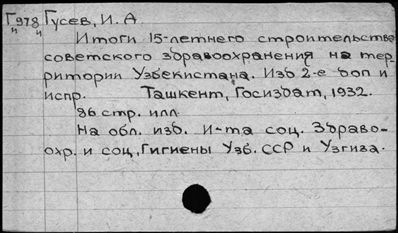 Г978 Гусев, И. А.
и и
Итоги 15-летнего строительства
советского здравоохранения на тер-
ритории Узбекистана. Изд 2-е доп и
испр. Ташкент, Госиздат, 1932.
86 стр. илл.
На обл. изд. И-та соц. Здраво-
охр. и соц, Гигиены Узб. ССР и Узгиза.